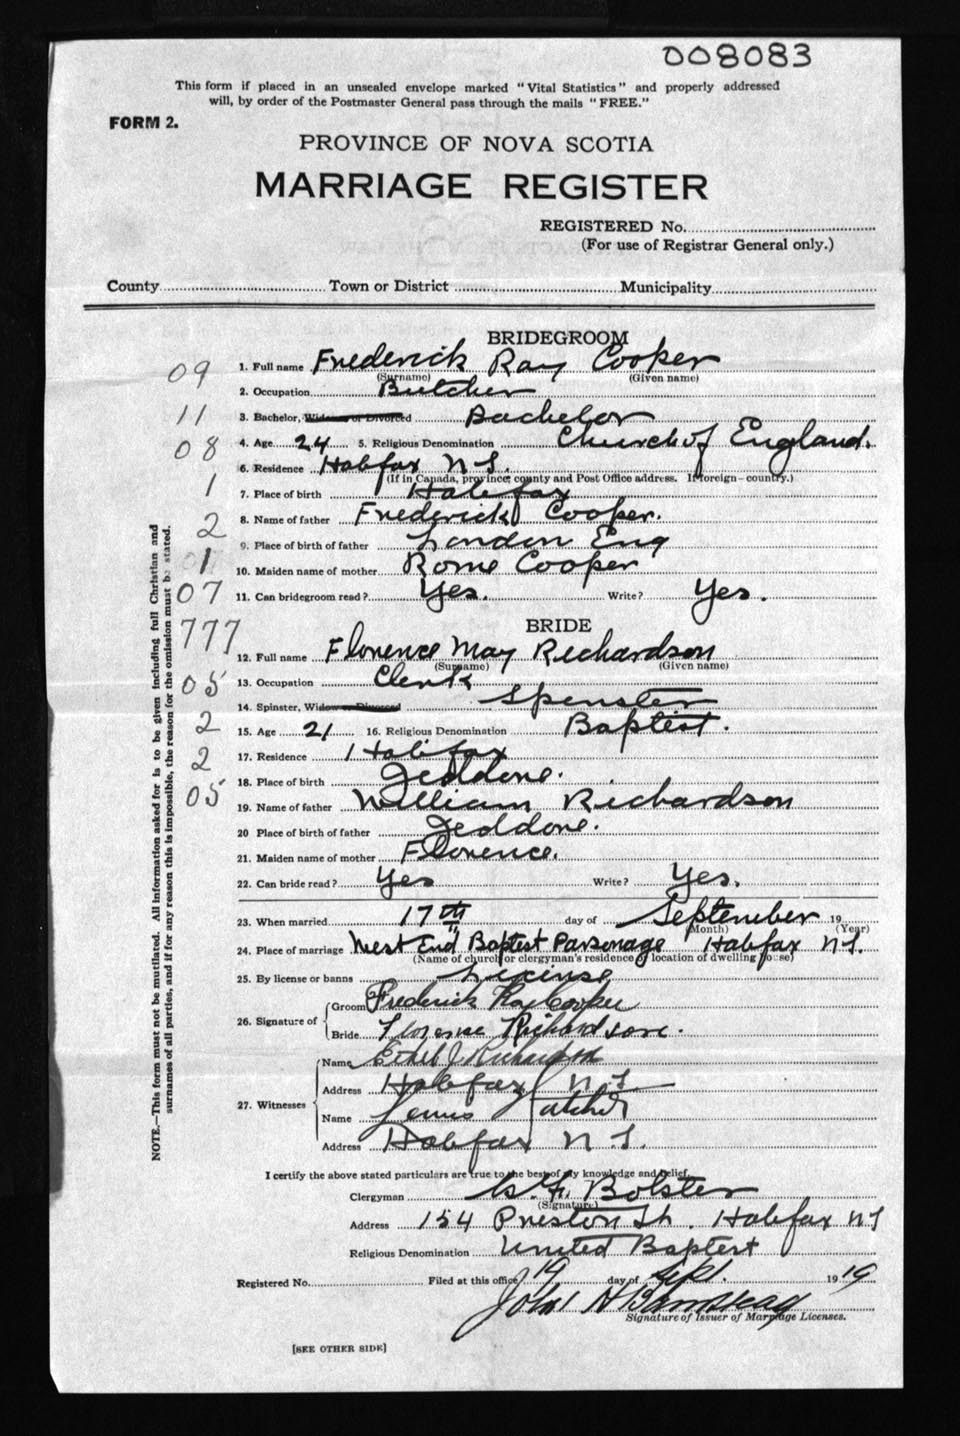 008083
This form if placed in an unsealed envelope marked "Vital Statistics" and properly addressed
will, by order of the Postmaster General pass through the mails "FREE."
FORM 2.
PROVINCE OF NOVA SCOTIA
MARRIAGE REGISTER
REGISTERED No.
(For use of Registrar General only.)
County Town or District Municipality
BRIDEGROOM
09 1. Full name Frederick Ray Cooper
(Surname) (Given name)
2. Occupation Butcher
11 3. Bachelor, Widower or Divorced Bachelor
08 4. Age 24 5. Religious Denomination Church of England.
6. Residence Halifax N S.
(If in Canada, province, county and Post Office address. If foreign—country.)
1 7. Place of birth Halifax
8. Name of father Frederick Cooper.
2 9. Place of birth of father London Eng
1 10. Maiden name of mother Rome Cooper
07 11. Can bridegroom read? Yes. Write? Yes.
777 BRIDE
12. Full name Florence May Richardson
(Surname) (Given name)
05 13. Occupation Clerk
14. Spinster, Widow or Divorced Spenster
2 15. Age 21 16. Religious Denomination Baptist.
2 17. Residence Halifax
18. Place of birth Jeddore.
05 19. Name of father William Richardson
20 Place of birth of father Jeddore.
21. Maiden name of mother Florence.
22. Can bride read? Yes Write? Yes.
23. When married 17th day of September 19
(Month) (Year)
24. Place of marriage West End Baptist Parsonage Halifax N S.
(Name of church or clergyman's residence or location of dwelling house)
25. By license or banns License
26. Signature of Groom Frederick Ray Cooper
Bride Florence Richardson.
27. Witnesses Name Ethel J Richardson
Address Halifax N S
Name Lewis Hatcher
Address Halifax N S.
I certify the above stated particulars are true to the best of my knowledge and belief.
Clergyman F. Bolster
(Signature)
Address 154 Preston St. Halifax N S
Religious Denomination United Baptist
Registered No. Filed at this office 19 day of Sept. 1919
John H
Signature of Issuer of Marriage Licenses.
[SEE OTHER SIDE]
NOTE.—This form must not be mutilated. All information asked for is to be given including full Christian and
surnames of all parties, and if for any reason this is impossible, the reason for the omission must be stated.